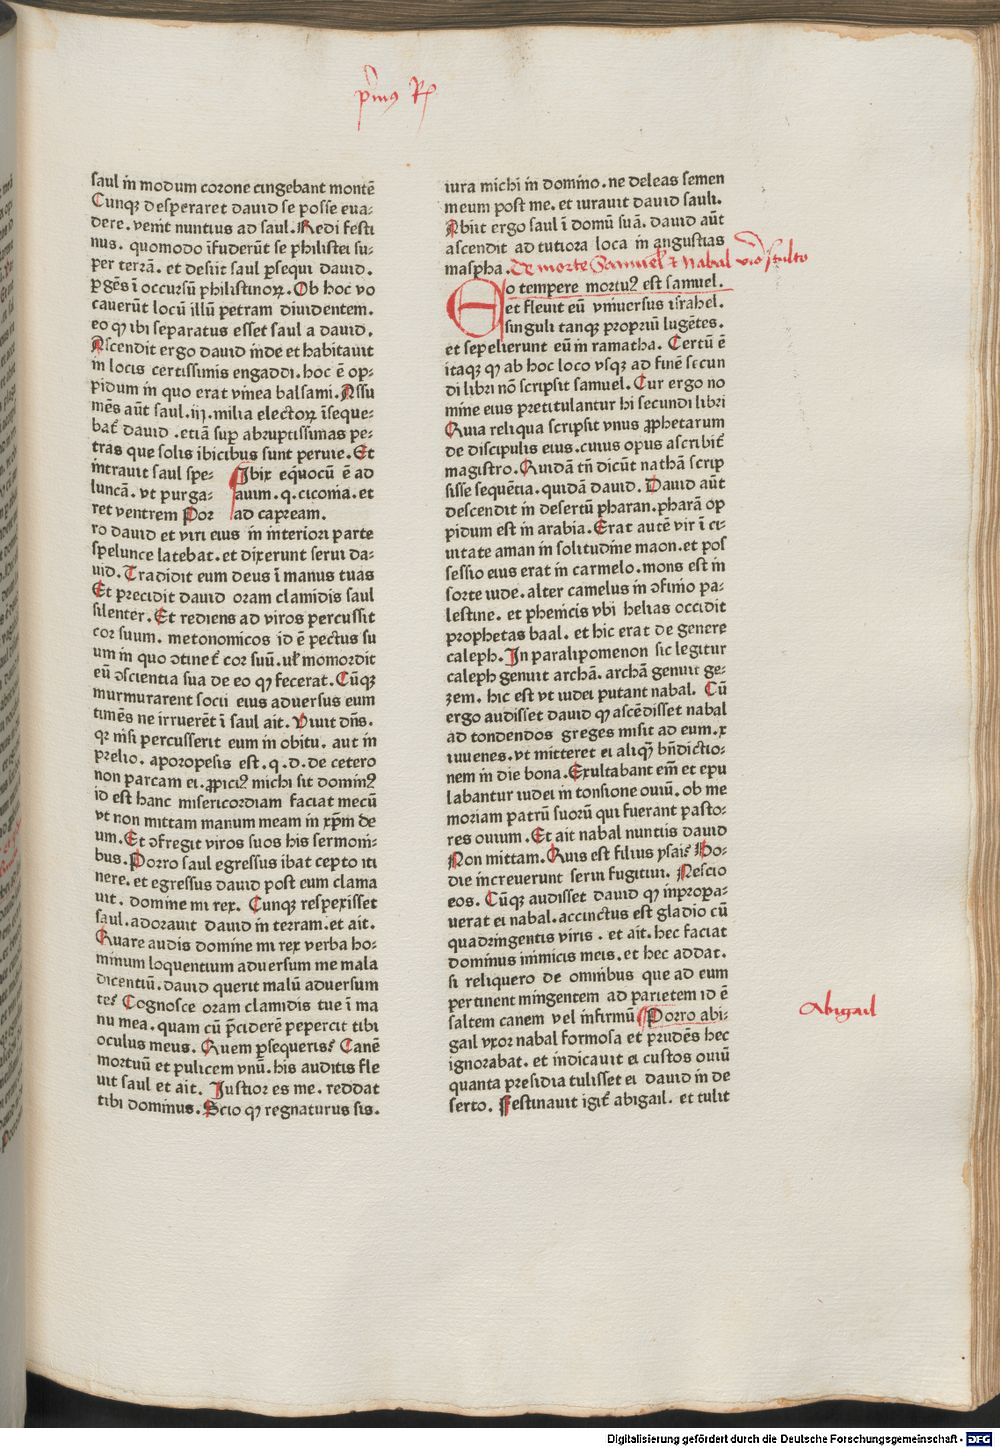 p̄mꝰ Rͬ
saul in modum corone cingebant montē
Cunqꝫ desperaret dauid se posse eua-
dere. venit nuntius ad saul. Redi festi
nus. quomodo īfuderūt se philistei su-
per terrā. et desiit saul ꝑsequi dauid.
ꝑgēs ī occursū philistinoꝝ. Ob hoc vo
cauerūt locū illū petram diuidentem.
eo ꝙ ibi separatus esset saul a dauid.
Ascendit ergo dauid inde et habitauit
in locis certissimis engaddi. hoc ē op-
pidum in quo erat vinea balsami. Assu
mēs aūt saul .iij. milia electoꝝ īseque-
bat̄ dauid .etiā suꝑ abruptissimas pe-
tras que solis ibicibus sunt peruie. Et
intrauit saul spe-
luncā. vt purga-
ret ventrem Por
Ibix eq̄uocū ē ad
auum. q. ciconia. et
ad capream.
ro dauid et viri eius in interiori parte
spelunce latebat. et dixerunt serui da-
uid. Tradidit eum deus ī manus tuas
Et precidit dauid oram clamidis saul
silenter. Et rediens ad viros percussit
cor suum. metonomicos id ē pectus su
um in quo ↄtinet̄ cor suū. ul̄ momordit
eū ↄscientia sua de eo ꝙ fecerat. Cūqꝫ
murmurarent socii eius aduersus eum
timēs ne irruerēt ī saul ait. Viuit dn̄s.
qꝛ nisi percusserit eum in obitu. aut in
prelio. aporopesis est. q. d. de cetero
non parcam ei. ꝓpiciꝰ michi sit dominꝰ
id est hanc misericordiam faciat mecū
vt non mittam manum meam in xp̄m de
um. Et ↄfregit viros suos his sermoni-
bus. Porro saul egressus ibat cepto iti
nere. et egressus dauid post eum clama
uit. domine mi rex. Cunqꝫ respexisset
saul. adorauit dauid in terram. et ait.
Quare audis domine mi rex verba ho-
minum loquentium aduersum me mala
dicentiū. dauid querit malū aduersum
te? Cognosce oram clamidis tue ī ma
nu mea. quam cū p̄ciderē pepercit tibi
oculus meus. Quem ꝑsequeris? Canē
mortuū et pulicem vnū. his auditis fle
uit saul et ait. Iustior es me. reddat
tibi dominus. Scio ꝙ regnaturus sis.
iura michi in domino. ne deleas semen
meum post me. et iurauit dauid sauli.
Abiit ergo saul ī domū suā. dauid aūt
ascendit ad tutiora loca in angustias
maspha. De morte Samuel̄ ⁊ Nabal viro stulto
EO tempere mortuꝰ est samuel.
et fleuit eū vniuersus israhel.
singuli tanqꝫ propriū lugētes.
et sepelierunt eū in ramatha. Certū ē
itaqꝫ ꝙ ab hoc loco vsqꝫ ad finē secun
di libri nō scripsit samuel. Cur ergo no
mine eius pretitulantur hi secundi libri
Quia reliqua scripsit vnus ꝓphetarum
de discipulis eius. cuius opus ascribit̄
magistro. Quidā tn̄ dicūt nathā scrip
sisse sequētia. quidā dauid. Dauid aūt
descendit in desertū pharan. pharā op
pidum est in arabia. Erat autē vir ī ci-
uitate aman in solitudine maon. et pos
sessio eius erat in carmelo. mons est in
sorte iude. alter camelus in ↄfinio pa-
lestine. et phenicis vbi helias occidit
prophetas baal. et hic erat de genere
caleph. In paralipomenon sic legitur
caleph genuit archā. archā genuit ge-
zem. hic est vt iudei putant nabal. Cū
ergo audisset dauid ꝙ ascēdisset nabal
ad tondendos greges misit ad eum .x
iuuenes. vt mitteret ei aliqͥ bn̄dictio-
nem in die bona. Exultabant em̄ et epu
labantur iudei in tonsione ouiū. ob me
moriam patrū suorū qui fuerant pasto-
res ouium. Et ait nabal nuntiis dauid
Non mittam. Quis est filius ysai? Ho-
die increuerunt serui fugitiui. Nescio
eos. Cūqꝫ audisset dauid ꝙ inpropa-
uerat ei nabal. accinctus est gladio cū
quadringentis viris . et ait. hec faciat
dominus inimicis meis. et hec addat.
si reliquero de omnibus que ad eum
pertinent mingentem ad parietem id ē
saltem canem vel infirmū Porro abi-
gail vxor nabal formosa et prudēs hec
ignorabat. et indicauit ei custos ouiū
quanta presidia tulisset ei dauid in de
serto. Festinauit igit̄ abigail. et tulit
Abigail
Digitalisierung gefördert durch die Deutsche Forschungsgemeinschaft - DFG